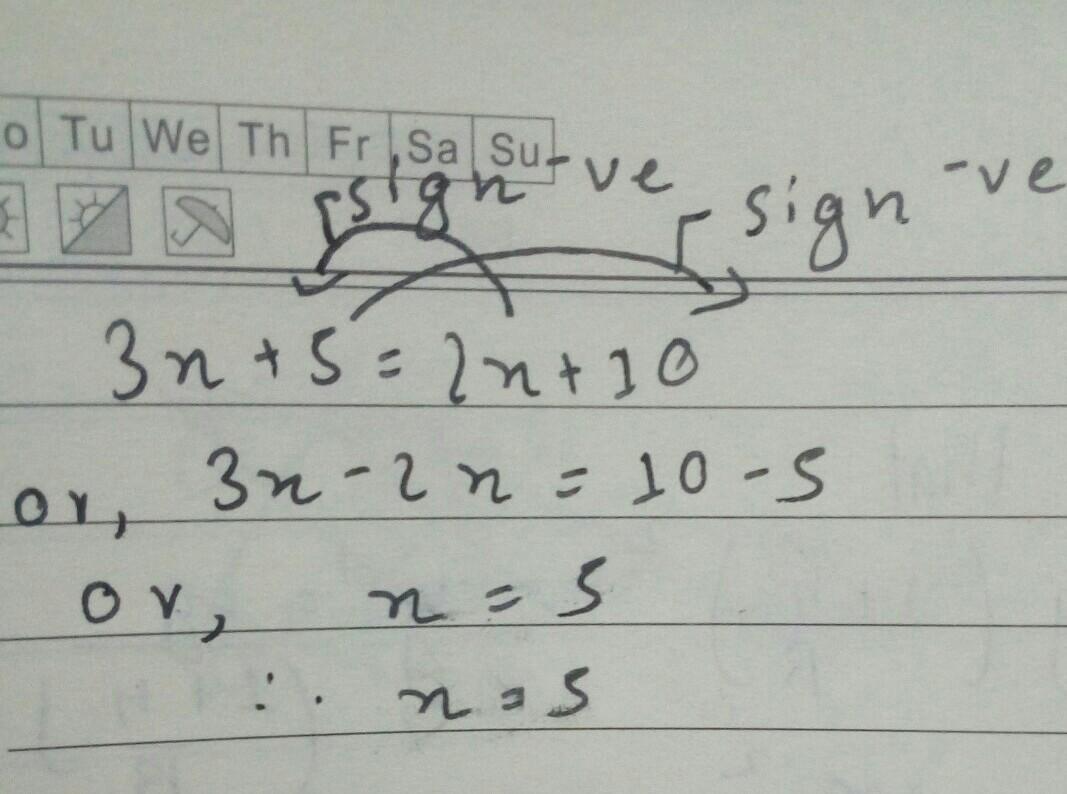 o Tu We Th Fr Sa Su
sign -ve sign -ve
3x + 5 = 2x + 10
or, 3x - 2x = 10 - 5
or, x = 5
∴ x = 5